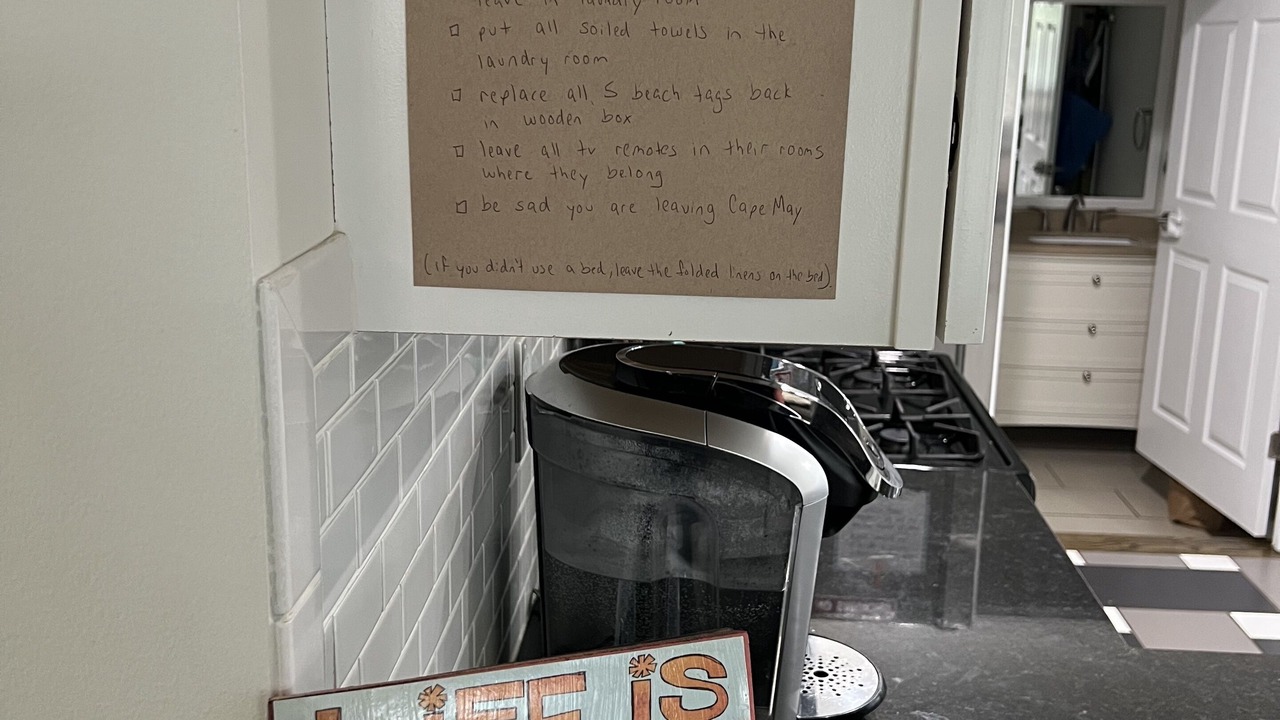 leave in laundry room
put all soiled towels in the
laundry room
replace all 5 beach tags back
in wooden box
leave all tv remotes in their rooms
where they belong
be sad you are leaving Cape May
(if you didn't use a bed, leave the folded linens on the bed)
LiFE iS